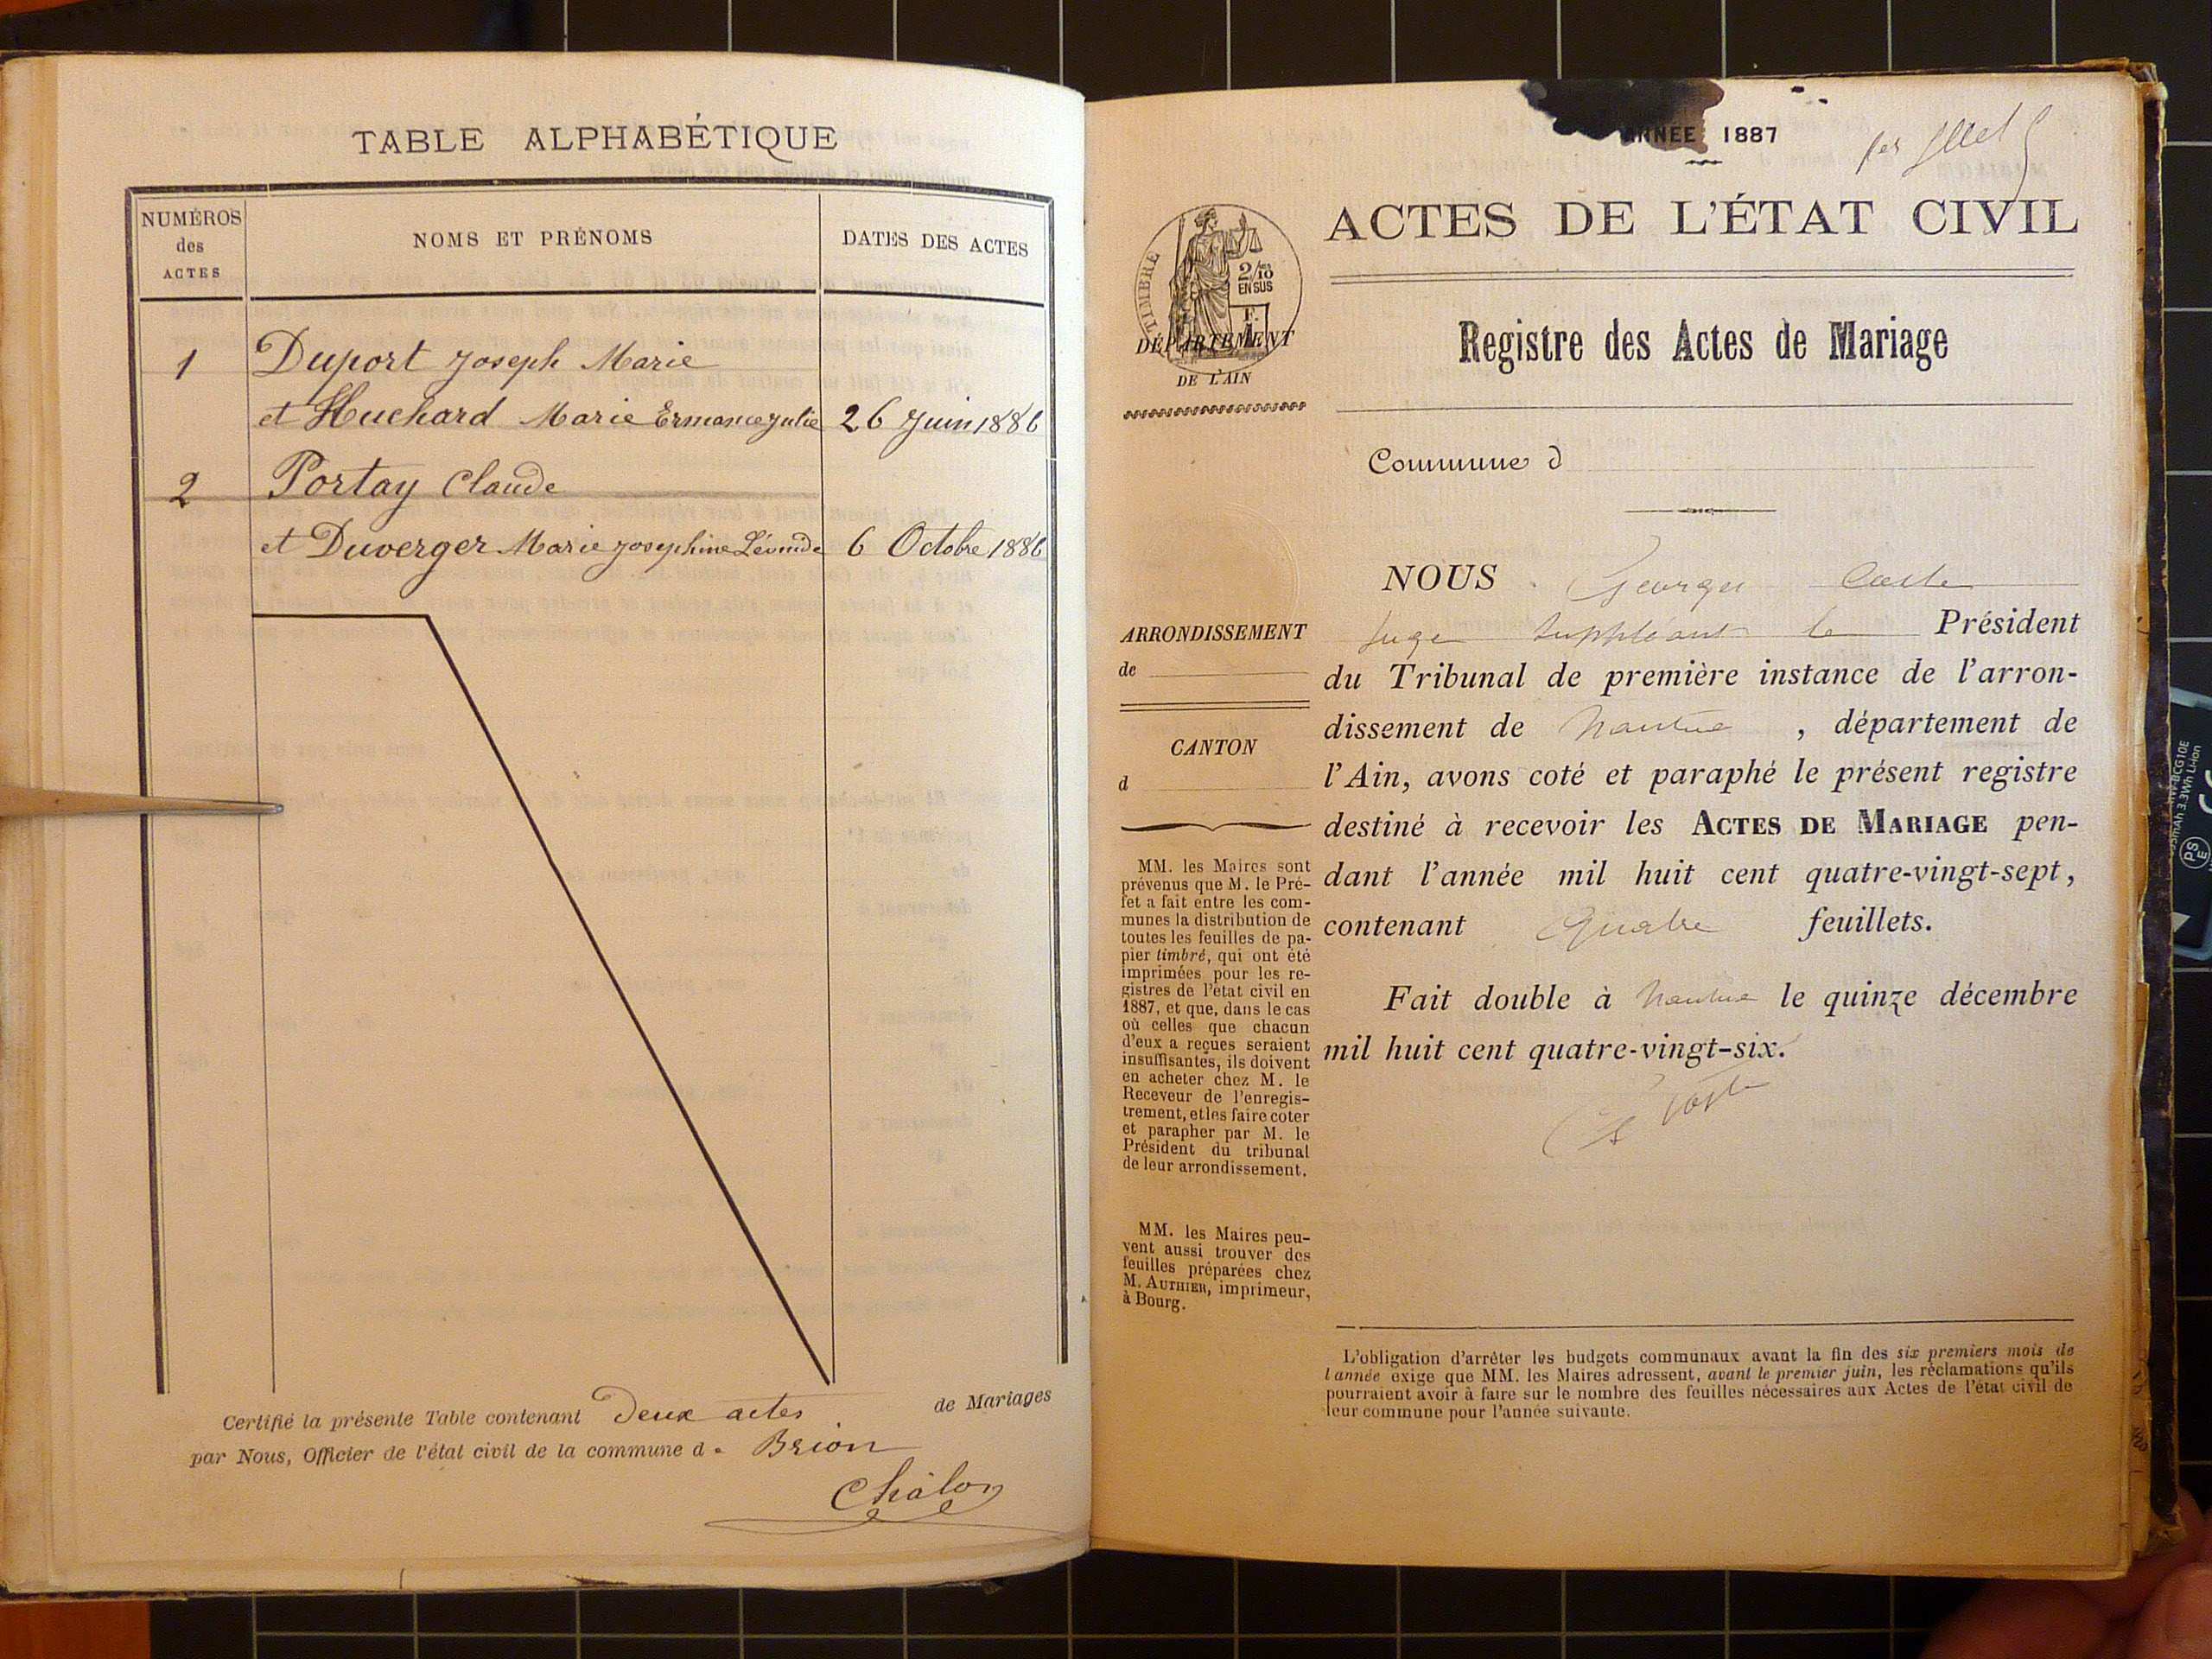 TABLE ALPHABÉTIQUE
NUMÉROS
des
ACTES
NOMS ET PRÉNOMS
DATES DES ACTES
1 Duport Joseph Marie
et Huchard Marie Ermance Julie 26 Juin 1886
2 Portay Claude
et Duverger Marie Josephine 6 Octobre 1886
Certifié la présente Table contenant deux actes de Mariages
par Nous, Officier de l'état civil de la commune de Brion
Châlon
ANNÉE 1887
ACTES DE L'ÉTAT CIVIL
TIMBRE
2/10
EN SUS
DÉPARTEMENT
DE L'AIN
Registre des Actes de Mariage
Commune d
NOUS Georges Coste
Juge Suppléant le Président
du Tribunal de première instance de l'arron-
dissement de Nantua, département de
l'Ain, avons coté et paraphé le présent registre
destiné à recevoir les ACTES DE MARIAGE pen-
dant l'année mil huit cent quatre-vingt-sept,
contenant Quatre feuillets.
Fait double à Nantua le quinze décembre
mil huit cent quatre-vingt-six.
G Coste
ARRONDISSEMENT
de
CANTON
d
MM. les Maires sont
prévenus que M. le Pré-
fet a fait entre les com-
munes la distribution de
toutes les feuilles de pa-
pier timbré, qui ont été
imprimées pour les re-
gistres de l'état civil en
1887, et que, dans le cas
où celles que chacun
d'eux a reçues seraient
insuffisantes, ils doivent
en acheter chez M. le
Receveur de l'enregis-
trement, et les faire coter
et parapher par M. le
Président du tribunal
de leur arrondissement.
MM. les Maires peu-
vent aussi trouver des
feuilles préparées chez
M. AUTHIER, imprimeur,
à Bourg.
L'obligation d'arrêter les budgets communaux avant la fin des six premiers mois de
l'année exige que MM. les Maires adressent, avant le premier juin, les réclamations qu'ils
pourraient avoir à faire sur le nombre des feuilles nécessaires aux Actes de l'état civil de
leur commune pour l'année suivante.